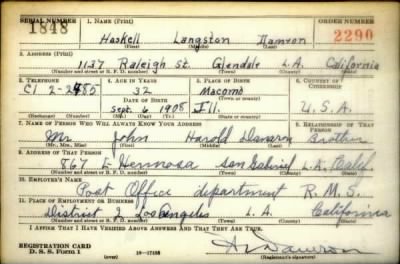 SERIAL NUMBER 1. NAME (Print) ORDER NUMBER
1848 Haskell Langston Damron 2290
(First) (Middle) (Last)
2. ADDRESS (Print)
1137 Raleigh St. Glendale L.A. California
(Number and street or R. F. D. number) (Town) (County) (State)
3. TELEPHONE 4. AGE IN YEARS 5. PLACE OF BIRTH 6. COUNTRY OF CITIZENSHIP
32 Macomb
CI 2-2485 DATE OF BIRTH (Town or county)
Sept. 6 1908 Ill. U.S.A.
(Exchange) (Number) (Mo.) (Day) (Yr.) (State or country)
7. NAME OF PERSON WHO WILL ALWAYS KNOW YOUR ADDRESS 8. RELATIONSHIP OF THAT PERSON
Mr. John Harold Damron Brother
(Mr., Mrs., Miss) (First) (Middle) (Last)
9. ADDRESS OF THAT PERSON
867 E Hermosa San Gabriel L.A. Calif.
(Number and street or R. F. D. number) (Town) (County) (State)
10. EMPLOYER'S NAME
Post Office department R.M.S.
11. PLACE OF EMPLOYMENT OR BUSINESS
District 2 Los Angeles L.A. California
(Number and street or R. F. D. number) (Town) (County) (State)
I AFFIRM THAT I HAVE VERIFIED ABOVE ANSWERS AND THAT THEY ARE TRUE.
REGISTRATION CARD
D. S. S. Form 1 (over) (Registrant's signature)